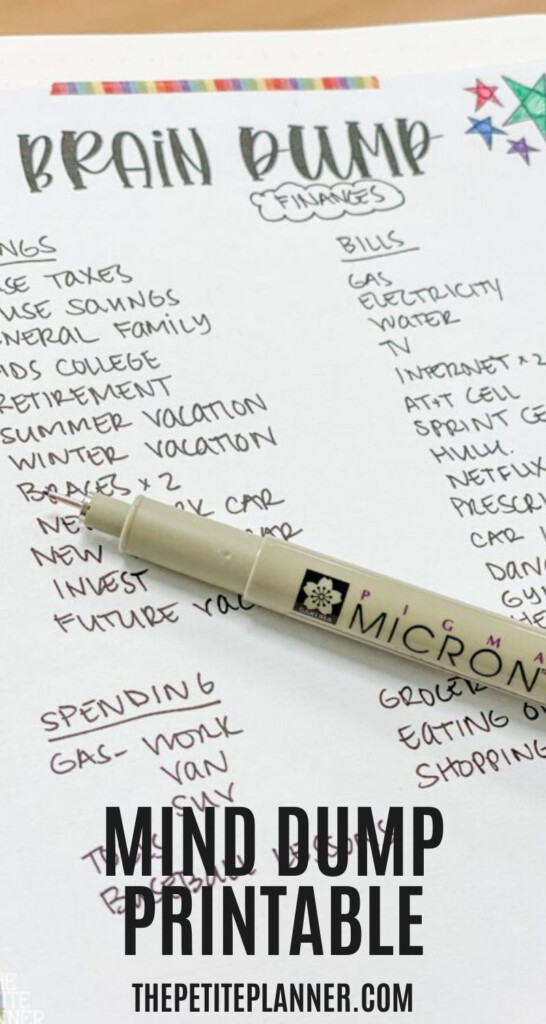 BRAIN DUMP
FINANCES
NGS
SE TAXES
USE SAVINGS
NERAL FAMILY
IDS COLLEGE
RETIREMENT
SUMMER VACATION
WINTER VACATION
BRACES x 2
NE RK CAR
NEW AR
INVEST
FUTURE VAC
BILLS
GAS
ELECTRICITY
WATER
TV
INTERNET x 2
AT+T CELL
SPRINT CE
HULU
NETFLIX
PRESCRI
CAR I
DAN
GY
HE
PIGMA
MICRON™
SPENDING
GAS- WORK
VAN
SUV
BASEBALL LESSONS
GROCER
EATING O
SHOPPING
MIND DUMP
PRINTABLE
THEPETITEPLANNER.COM